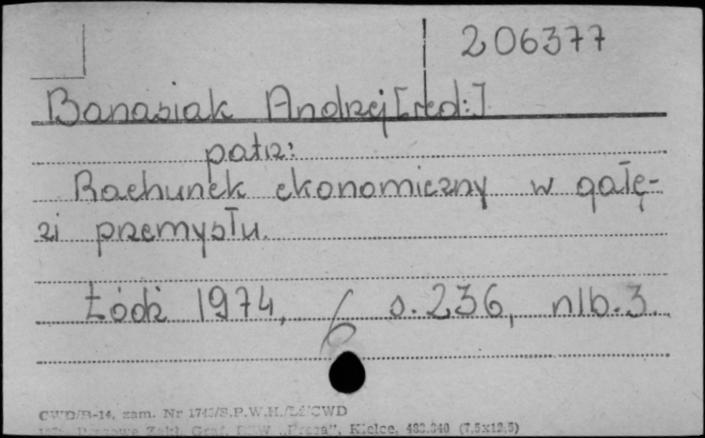 206377
Banasiak Andrzej [red.:]
patrz:
Rachunek ekonomiczny w gałę-
zi przemysłu.
Łódź 1974, s. 236, nlb. 3.
6
CWD/B-14, zam. Nr /S.P.W.H./ CWD
Zakł. Graf. Kielce, (7,5x12,5)